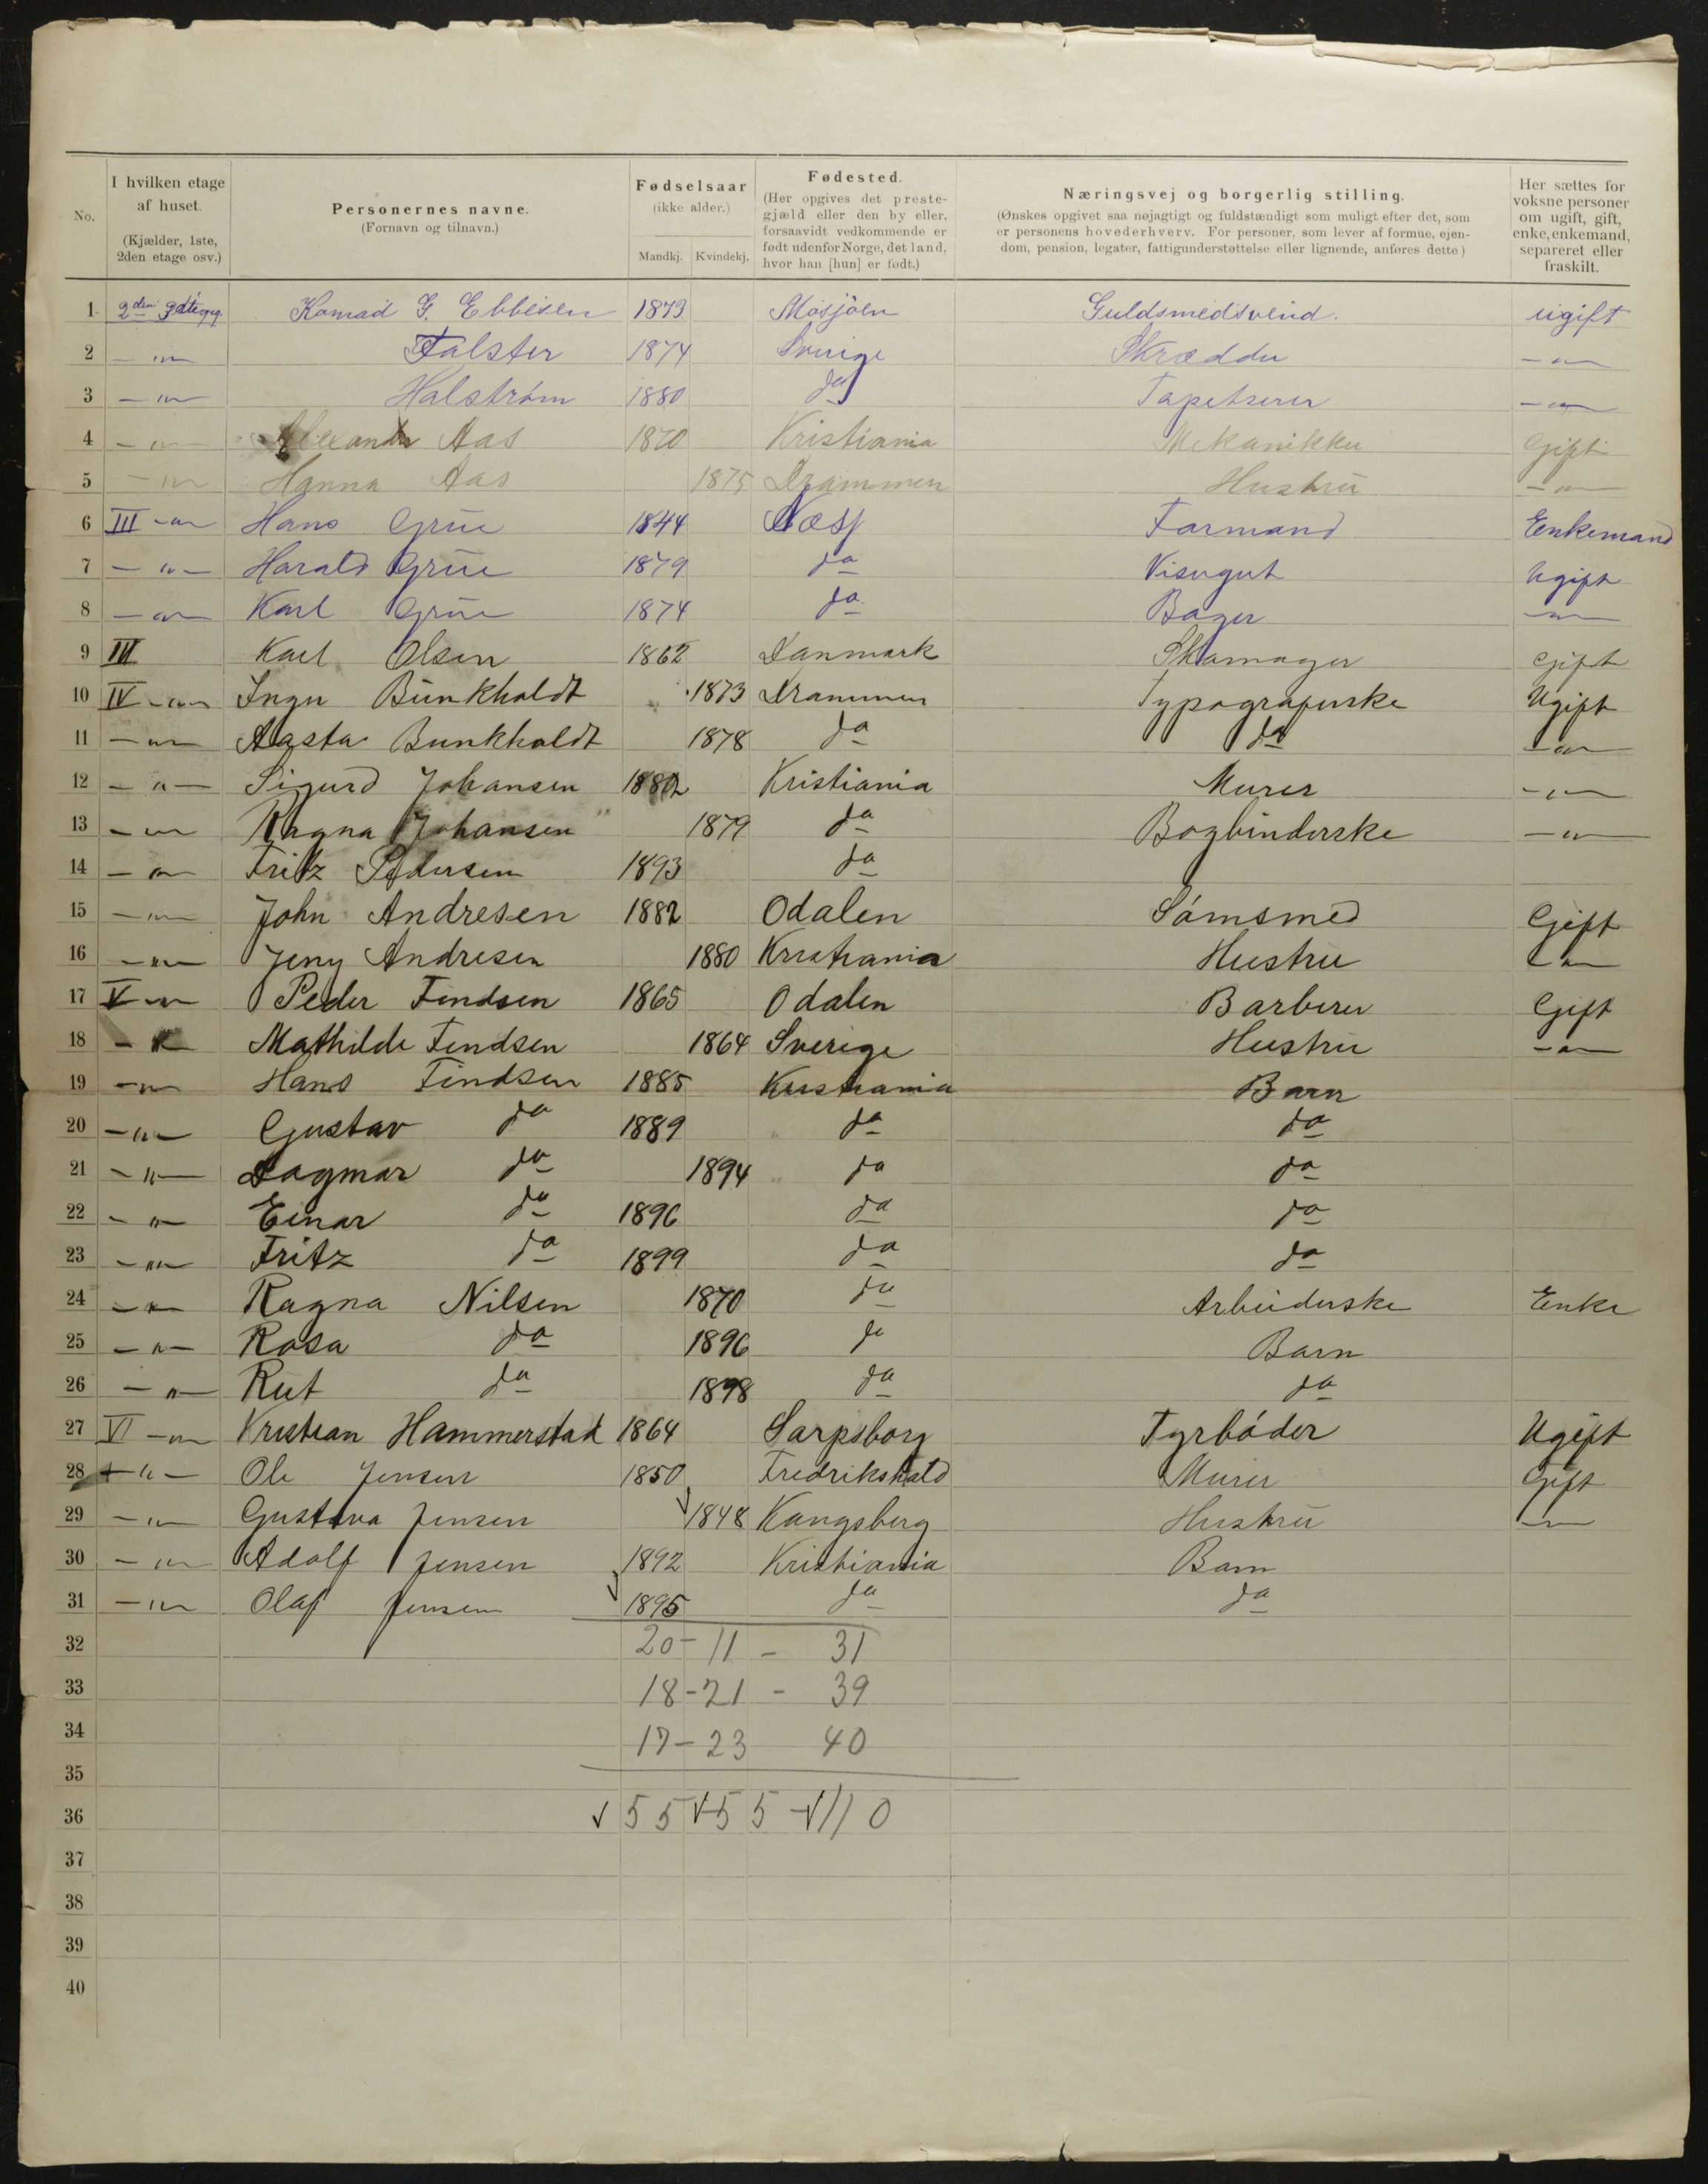 No. | I hvilken etage af huset. (Kjælder, 1ste, 2den etage osv.) | Personernes navne. (Fornavn og tilnavn.) | Fødselsaar (ikke alder.) Mandkj. Kvindekj. | Fødested. (Her opgives det prestegjæld eller den by eller, forsaavidt vedkommende er født udenfor Norge, det land, hvor han [hun] er født.) | Næringsvej og borgerlig stilling. (Ønskes opgivet saa nøjagtigt og fuldstændigt som muligt efter det, som er personens hovederhverv. For personer, som lever af formue, ejendom, pension, legater, fattigunderstøttelse eller lignende, anføres dette) | Her sættes for voksne personer om ugift, gift, enke, enkemand, separeret eller fraskilt.
1 2den Konrad G. Ebbesen 1879 Mosjøen Guldsmedsvend. ugift
2 — " — Falster 1874 Sverige Skrædder — " —
3 — " — Halstrøm 1880 do Tapetserer — " —
4 — " — Alexander Aas 1870 Kristiania Mekanikker Gift
5 — " — Hanna Aas 1875 Drammen Hustru — " —
6 III — " — Hans Grüe 1844 Næs Formand Enkemand
7 — " — Harald Grüe 1879 do Visergut Ugift
8 — " — Karl Grüe 1874 do Bager — " —
9 III Karl Olsen 1862 Danmark Skomager Gift
10 IV — " — Inger Bunkholdt 1873 Drammen Typograferske Ugift
11 — " — Aasta Bunkholdt 1878 do do — " —
12 — " — Sigurd Johansen 1882 Kristiania Murer — " —
13 — " — Ragna Johansen 1879 do Bogbinderske — " —
14 — " — Fritz Pedersen 1893 do
15 — " — John Andresen 1882 Odalen Sømsmed Gift
16 — " — Jeny Andresen 1880 Kristiania Hustru — " —
17 V — " — Peder Findsen 1865 Odalen Barberer Gift
18 — " — Mathilde Findsen 1864 Sverige Hustru — " —
19 — " — Hans Findsen 1885 Kristiania Barn
20 — " — Gustav do 1889 do do
21 — " — Dagmar do 1894 do do
22 — " — Einar do 1896 do do
23 — " — Fritz do 1899 do do
24 — " — Ragna Nilsen 1870 do Arbeiderske Enke
25 — " — Rosa do 1896 do Barn
26 — " — Rut do 1898 do do
27 VI — " — Kristian Hammerstad 1864 Sarpsborg Fyrbøder Ugift
28 — " — Ole Jensen 1850 Fredrikshald Murer Gift
29 — " — Gustava Jensen 1848 Kongsberg Hustru — " —
30 — " — Adolf Jensen 1892 Kristiania Barn
31 — " — Olaf Jensen 1895 do do
32 20 - 11 - 31
33 18 - 21 - 39
34 17 - 23 40
35
36 √ 55 √ 55 - √ 110
37
38
39
40